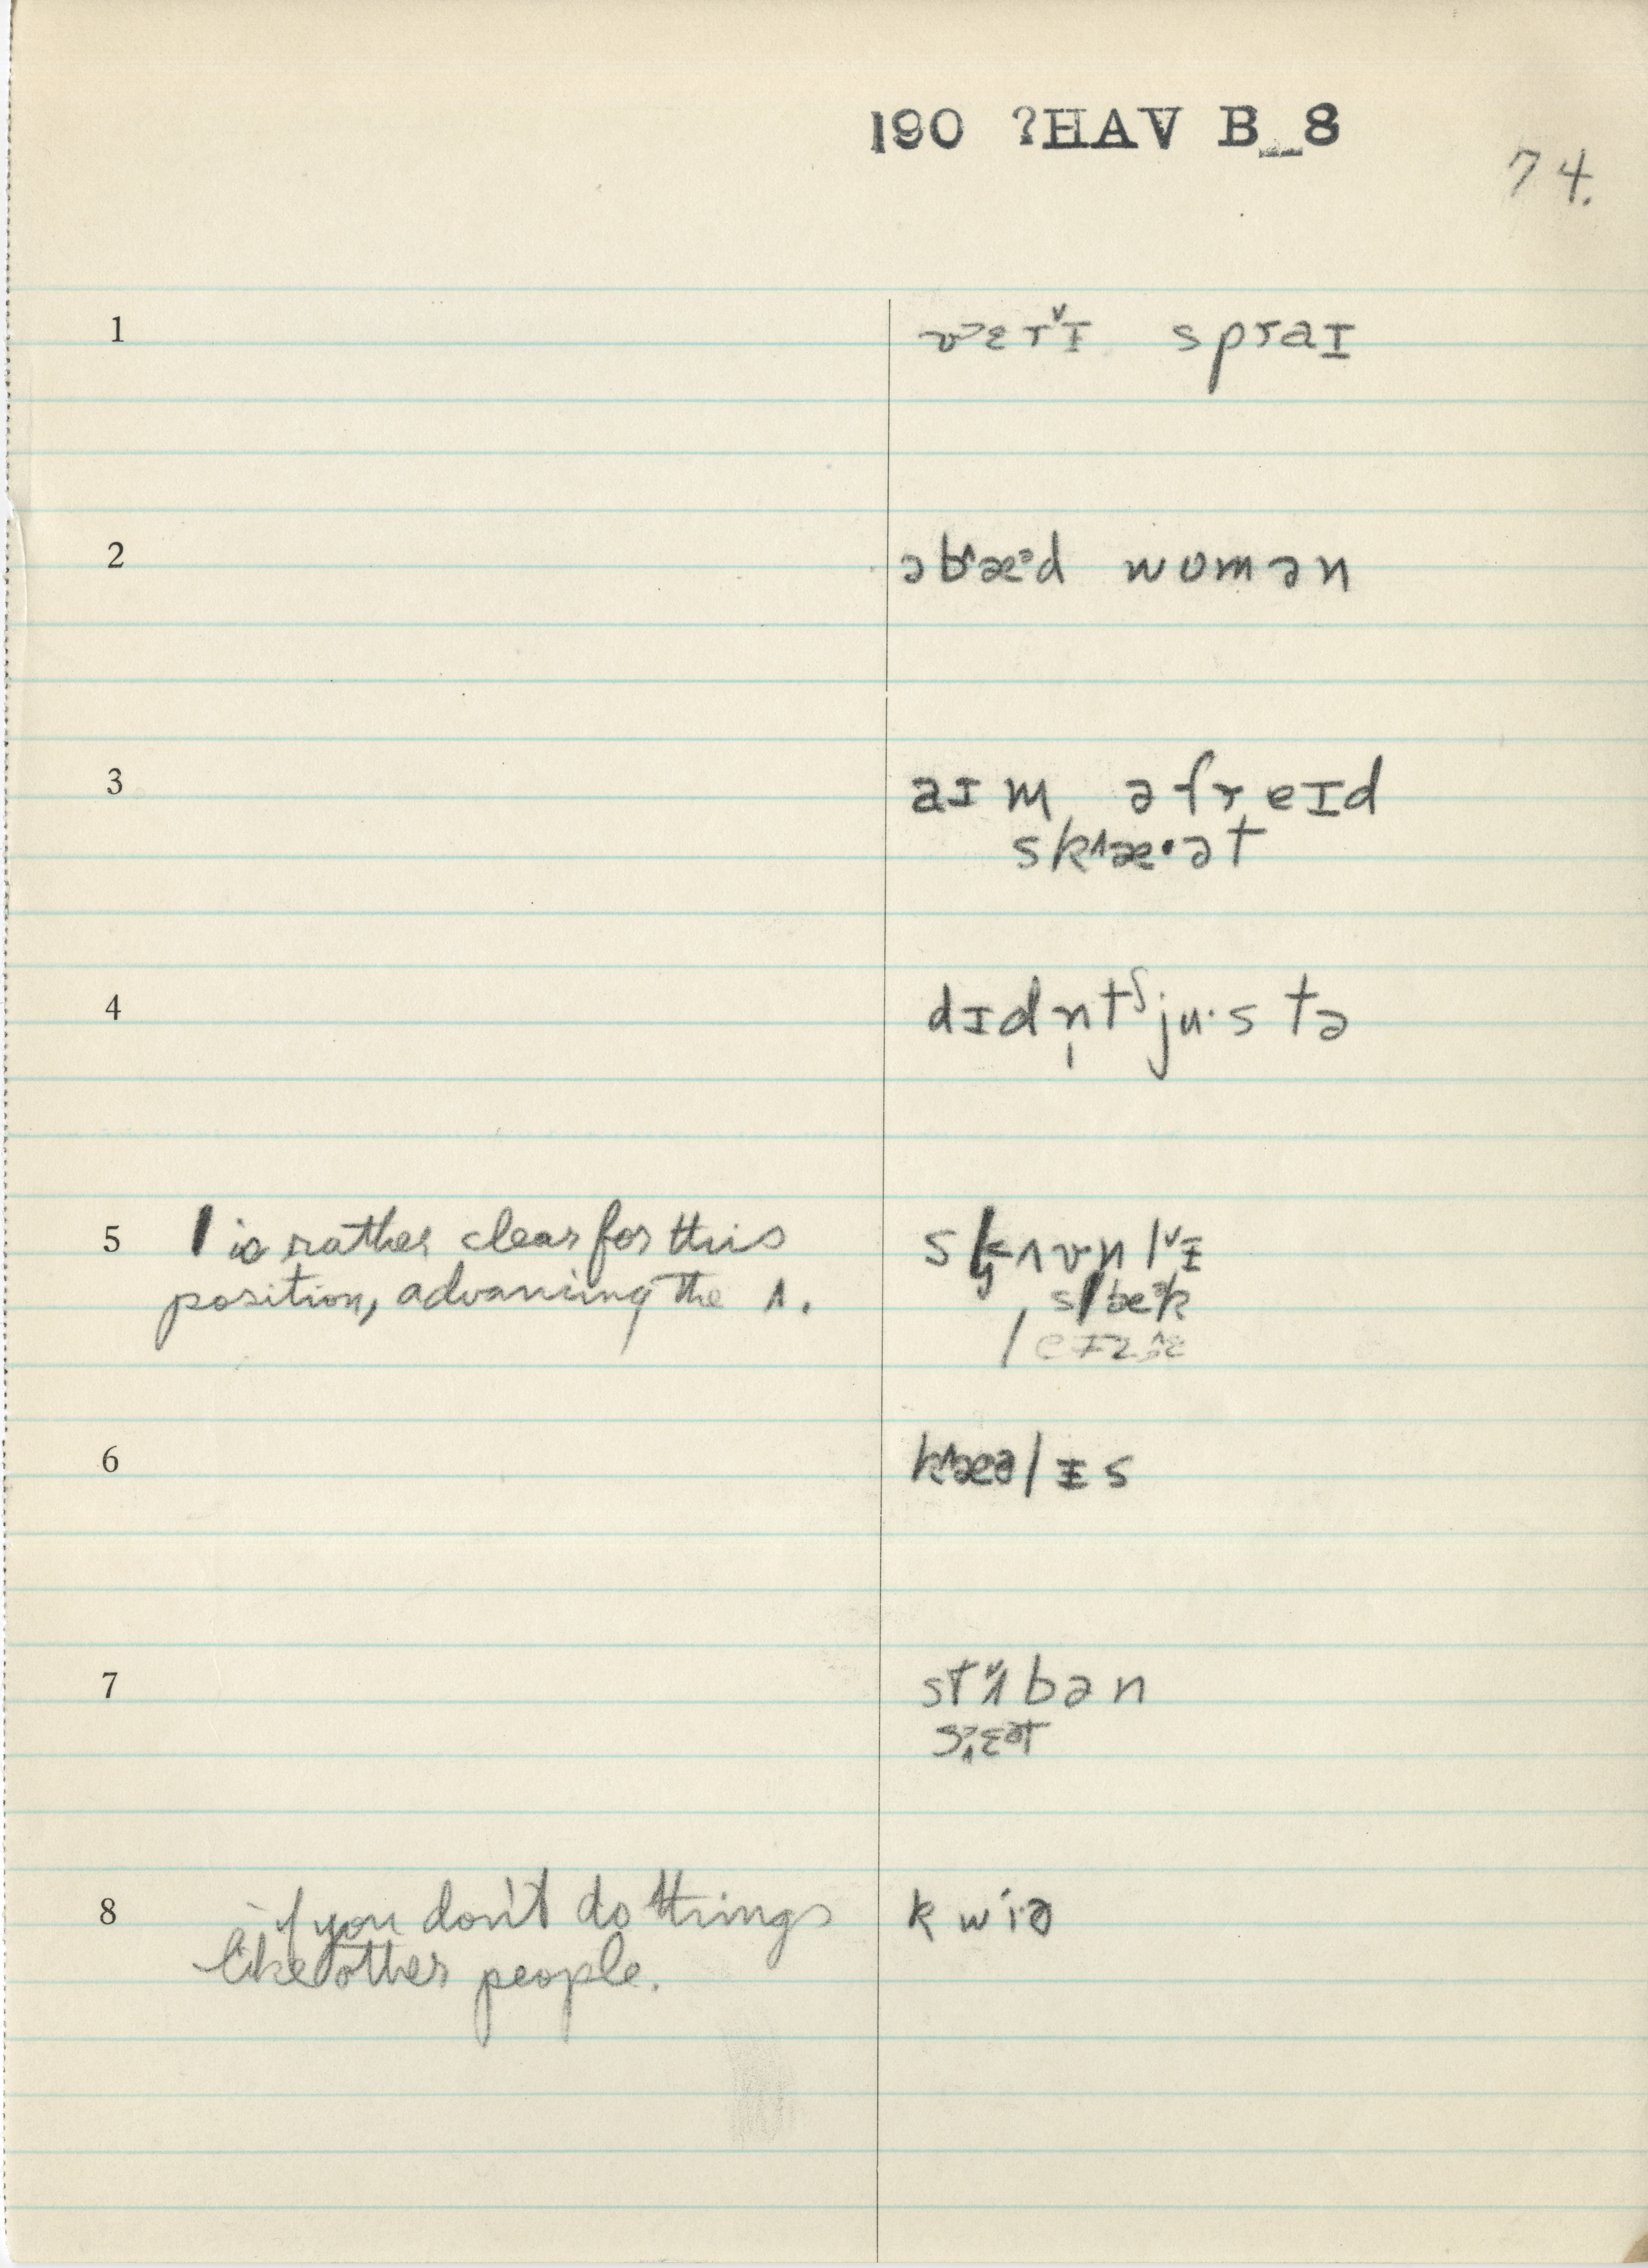 190 ?HAV B_8
74.
1 vɛrˇɪ spraɪ
2 əbˆæᵊd wʊmən
3 aɪm əfreɪd
skˆæ·ət
4 dɪdn̩tʃju·stə
5 l is rather clear for this
position, advancing the ʌ.
6 kˆæəlɪs
7 stʌbən
8 if you don't do things kwiə
like other people.